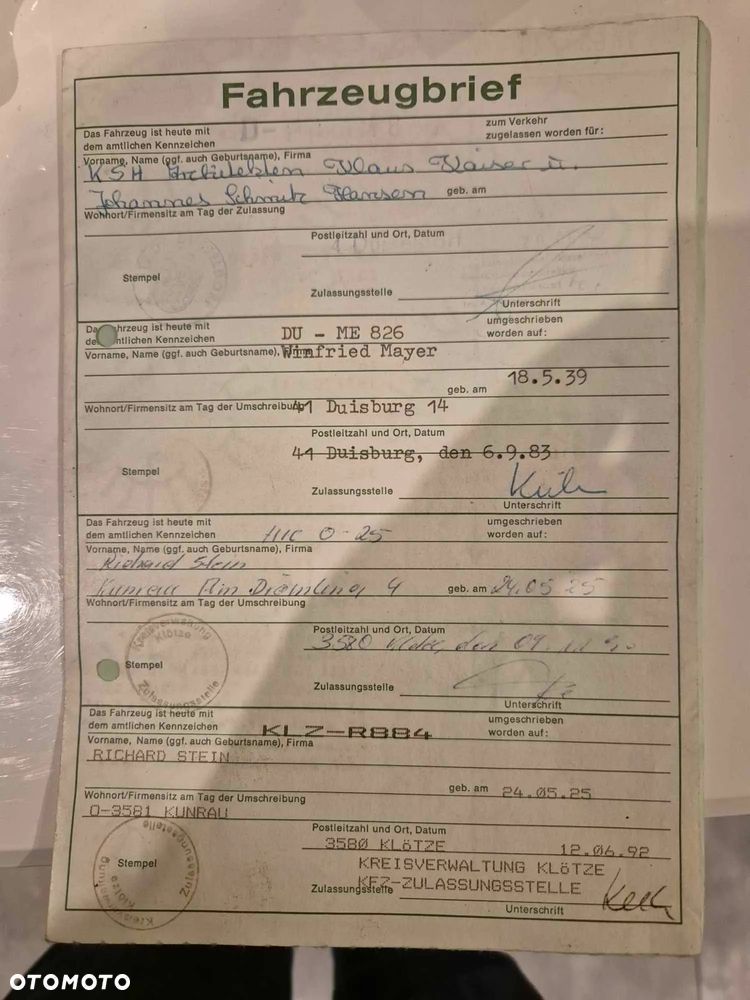 Fahrzeugbrief
Das Fahrzeug ist heute mit
dem amtlichen Kennzeichen
zum Verkehr
zugelassen worden für:
Vorname, Name (ggf. auch Geburtsname), Firma
KSH Architekten Klaus Kaiser u.
Johannes Schmitz Hansen geb. am
Wohnort/Firmensitz am Tag der Zulassung
Postleitzahl und Ort, Datum
Stempel
Zulassungsstelle
Unterschrift
Das Fahrzeug ist heute mit
dem amtlichen Kennzeichen
DU - ME 826
umgeschrieben
worden auf:
Vorname, Name (ggf. auch Geburtsname), Firma
Winfried Mayer
geb. am 18.5.39
Wohnort/Firmensitz am Tag der Umschreibung
41 Duisburg 14
Postleitzahl und Ort, Datum
41 Duisburg, den 6.9.83
Stempel
Zulassungsstelle
Unterschrift
Das Fahrzeug ist heute mit
dem amtlichen Kennzeichen
0-25
umgeschrieben
worden auf:
Vorname, Name (ggf. auch Geburtsname), Firma
Richard Stein
Kunrau Am Drömling 4 geb. am 24.05 25
Wohnort/Firmensitz am Tag der Umschreibung
Postleitzahl und Ort, Datum
3580 den 09.
Kreisverwaltung
Klötze
Zulassungsstelle
Stempel
Zulassungsstelle
Unterschrift
Das Fahrzeug ist heute mit
dem amtlichen Kennzeichen
KLZ-R884
umgeschrieben
worden auf:
Vorname, Name (ggf. auch Geburtsname), Firma
RICHARD STEIN
geb. am 24.05.25
Wohnort/Firmensitz am Tag der Umschreibung
O-3581 KUNRAU
Postleitzahl und Ort, Datum
3580 KLöTZE 12.06.92
KREISVERWALTUNG KLöTZE
KFZ-ZULASSUNGSSTELLE
Kreisverwaltung
Klötze
Zulassungsstelle
Stempel
Zulassungsstelle
Unterschrift
OTOMOTO